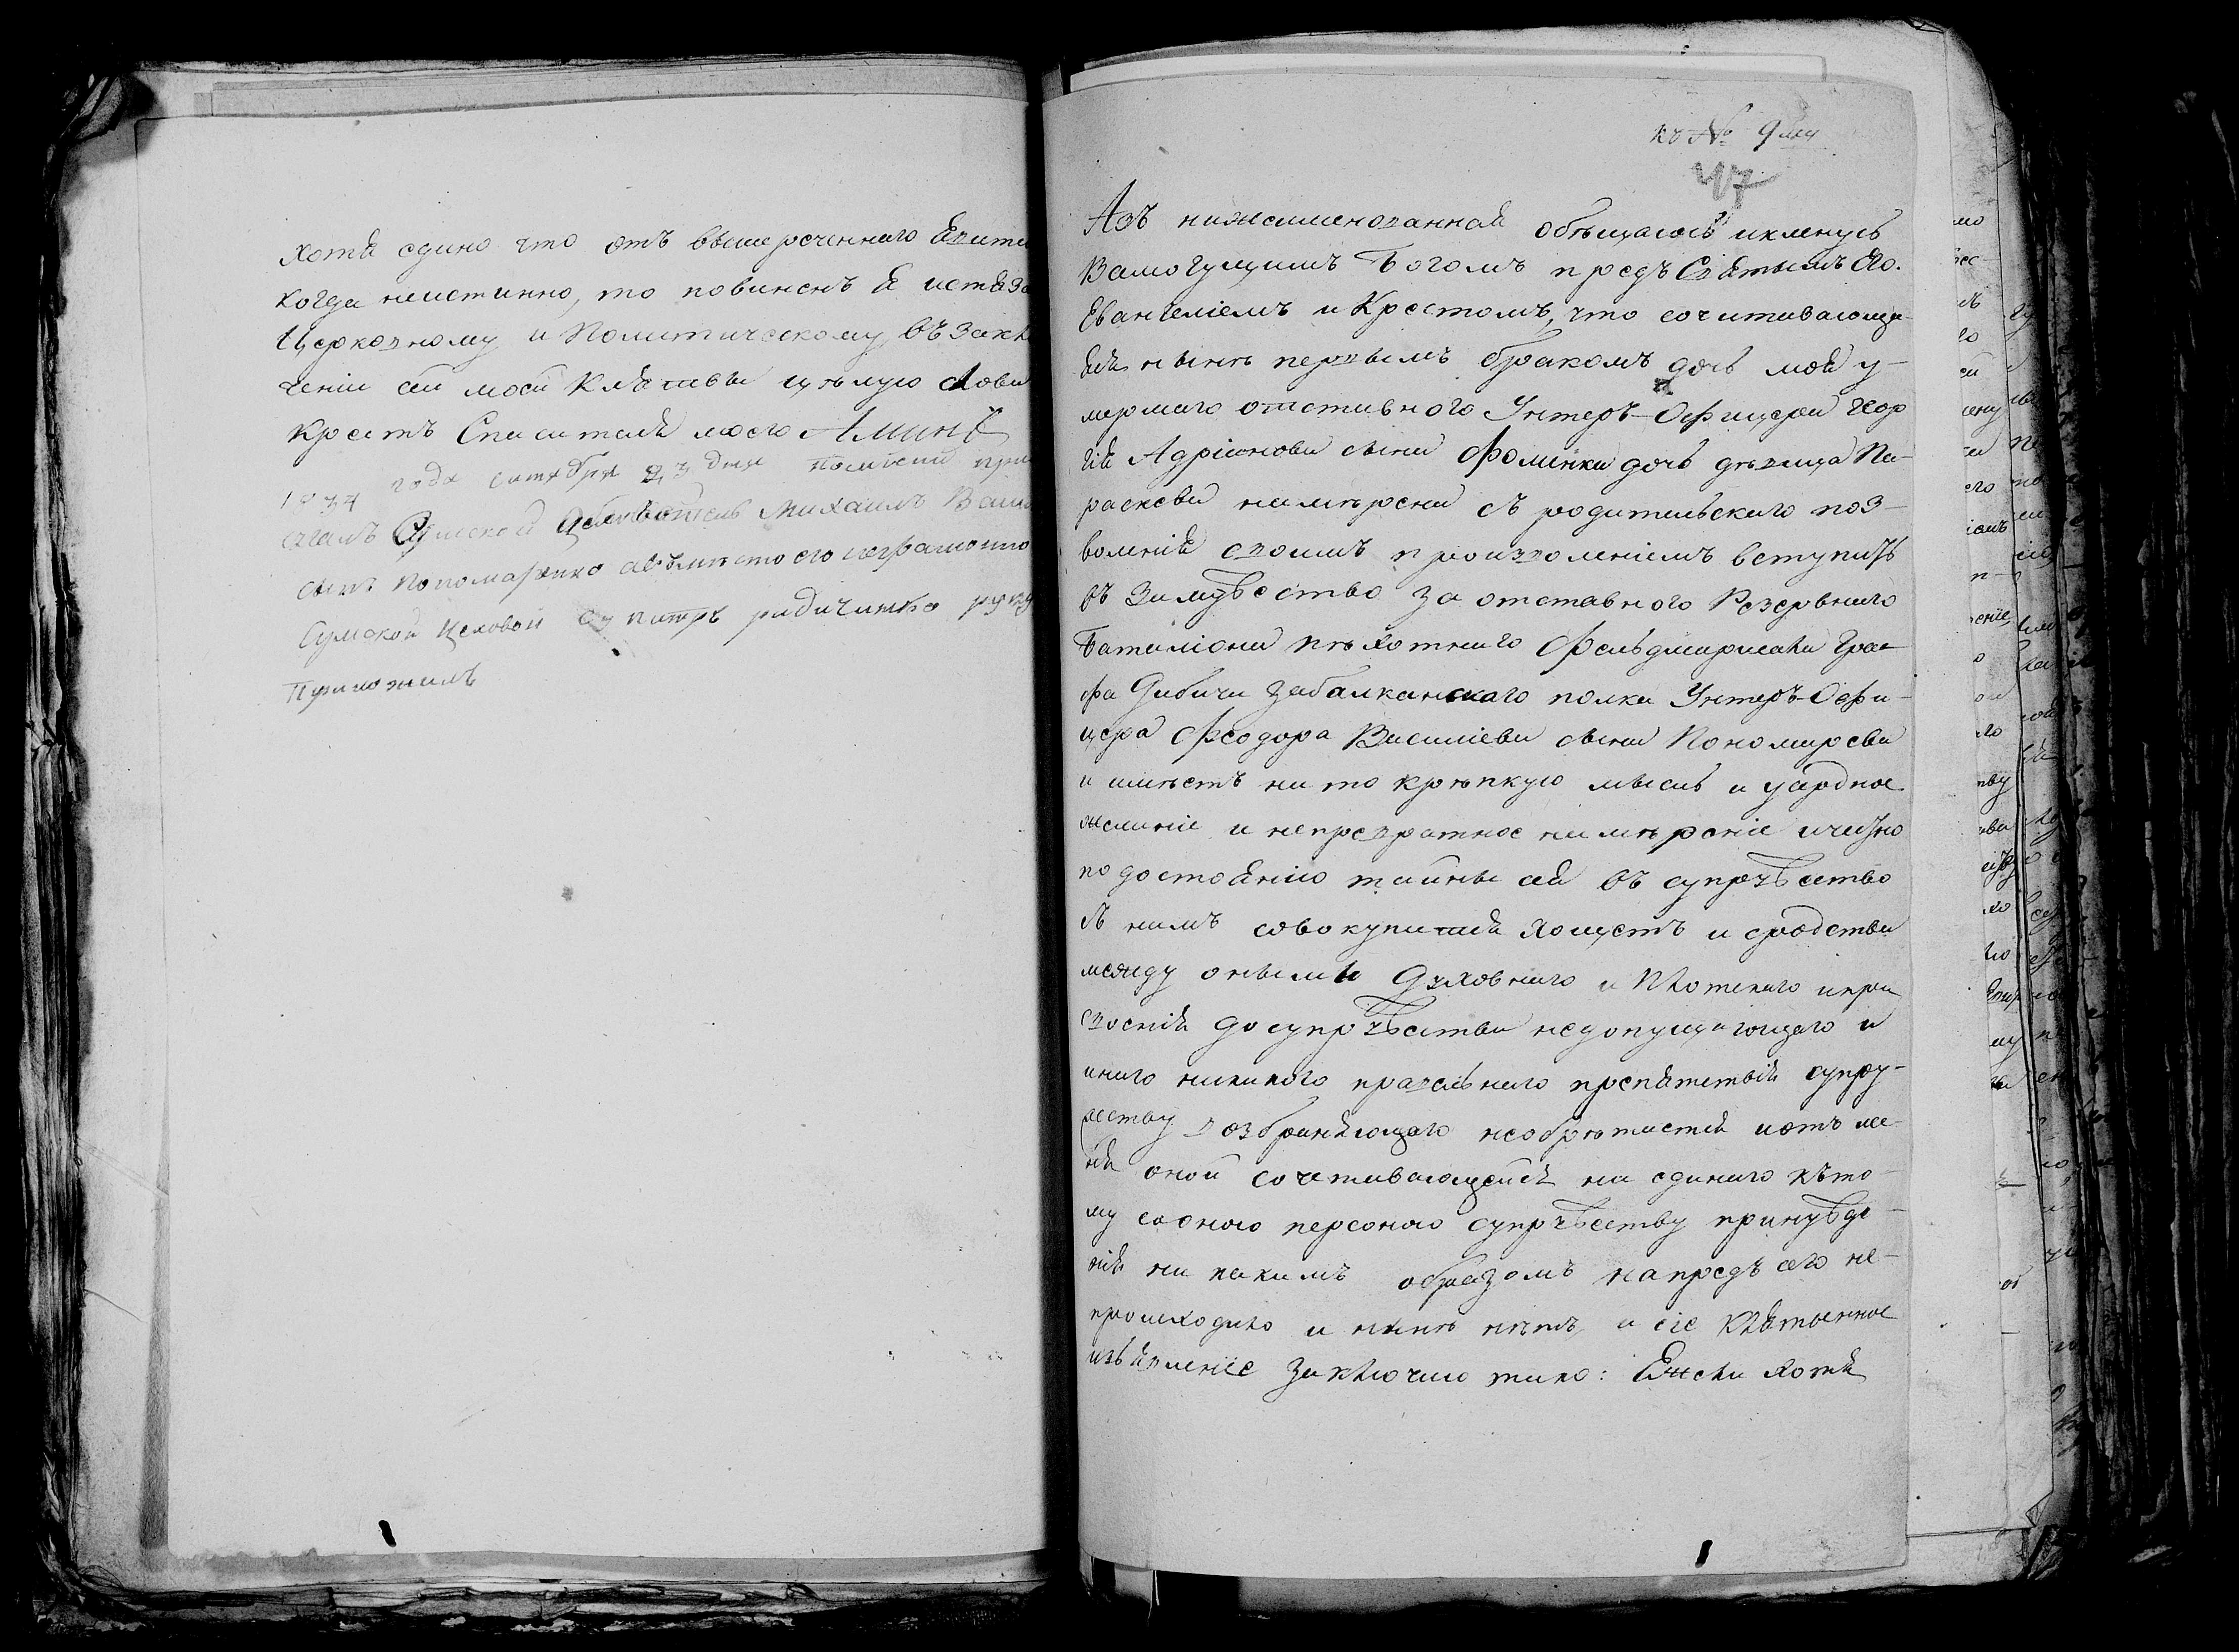 хотя едино что отъ вышереченнаго Явит
когда неистинно, то повиненъ я истяза
Церковному и Политическому, въ закл
ченіи сей моей Клятвы цѣлую слова
Крестъ Спасителя моего Аминь
1834 года сентября 23 дня
Сумской Михаилъ
сынъ Пономаренко
Сумской цеховой Петръ руку
Приложилъ
къ № 9му
47
Азъ нижеименованной обѣщаюсь и кленусь
Вемогущимъ Богомъ предъ Святымъ Его.
Евангеліемъ и Крестомъ, что сочитивающа-
яся нынѣ первымъ бракомъ дочь моя у-
мермаго отставного Унтеръ-Офицера Геор
гія Адріянова сына Фоменка дочь дѣвица Па-
раскева намѣрена съ родительскаго поз-
воленія своимъ произволеніемъ вступить
въ замужество за отставного Резервнаго
Баталіона пѣхотнаго Фельдмаршала Гра-
фа Дибича Забалканскаго полка Унтеръ-Офи-
цера Феодора Василіева сына Пономарева
и имѣетъ на то крѣпкую мысль и усердное
желаніе и непревратное намѣреніе
по достоянію тайны сея въ супружество
съ нимъ совокупится хощетъ и сродства
между оными Духовнаго и Плотскаго и кро
воснія до супружества недопущающаго и
инаго никакого правильнаго препятствія супру-
жеству возбраняющаго необрѣтается и отъ ме-
ня оной сочетивающейся на единаго къ то-
му со оною персоною супружеству принужде-
нія ни какимъ образомъ напредъ сего не-
происходило и нынѣ нѣтъ, и сіе Клятвенное
изъявленіе заключаю тако: Ежели хотя